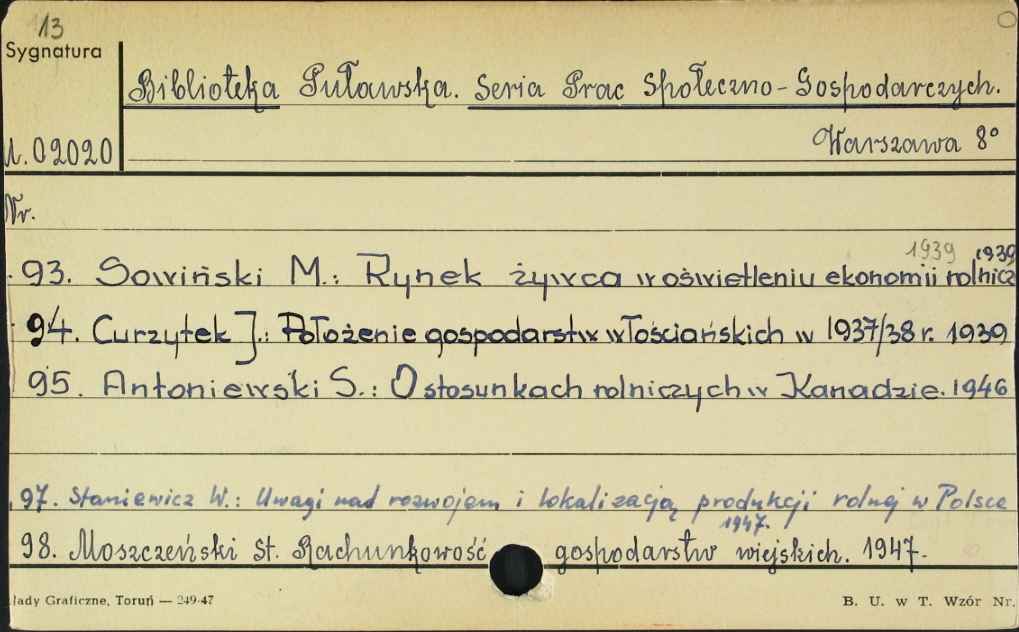 13
Sygnatura
Biblioteka Puławska. Seria Prac Społeczno-Gospodarczych.
02020
Warszawa 8°
Nr.
1939 1939
93. Sowiński M.: Rynek żywca w oświetleniu ekonomii rolnicz
94. Curzytek J.: Położenie gospodarstw włościańskich w 1937/38 r. 1939
95. Antoniewski S.: O stosunkach rolniczych w Kanadzie. 1946
97. Staniewicz W.: Uwagi nad rozwojem i lokalizacją produkcji rolnej w Polsce
1947.
98. Moszczeński St. Rachunkowość gospodarstw wiejskich. 1947.
łady Graficzne, Toruń — 249-47
B. U. w T. Wzór Nr.